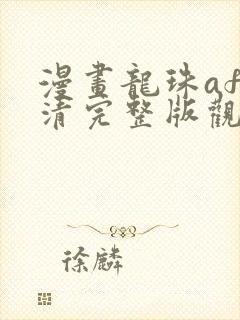 漫畫龍珠af
清完整版觀
徐麟